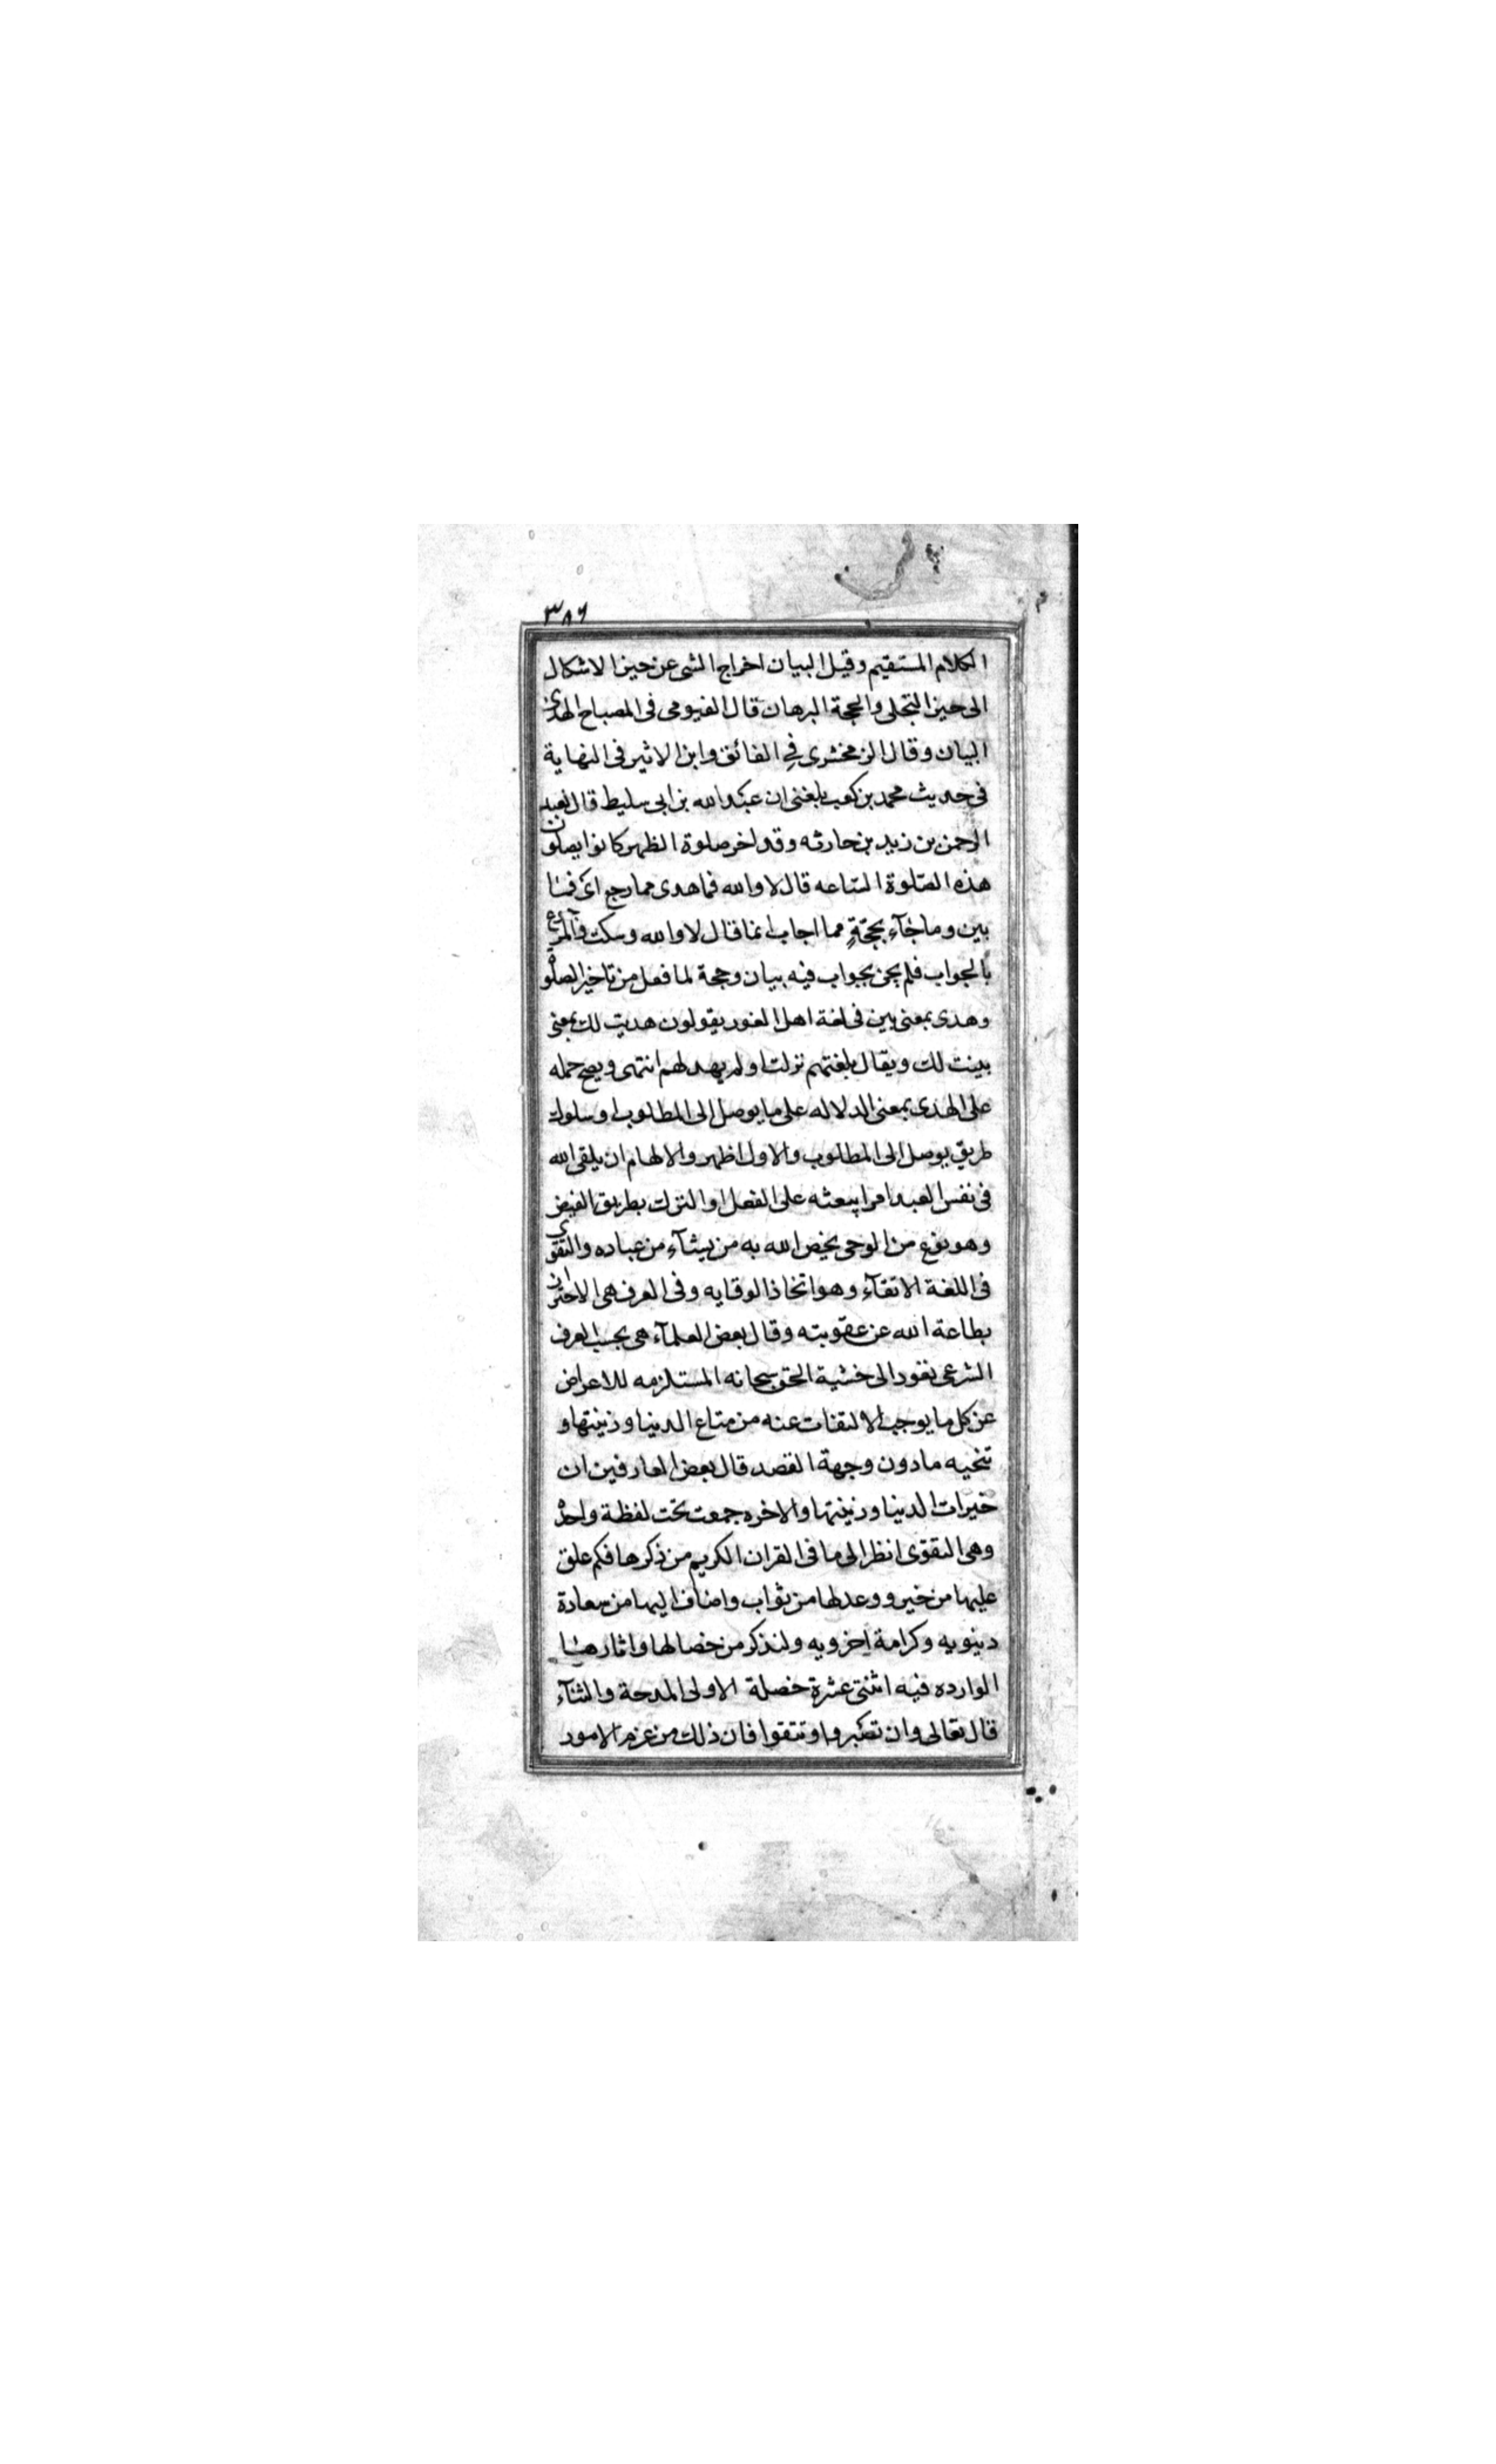 ٣٨٦
الكلام المستقيم وقيل البيان اخراج الشى عن حيز الاشكال
الى حيز التجلى والحجة البرهان قال الفيومى فى المصباح الهدى
البيان وقال الزمخشرى فى الفائق وابن الاثير فى النهاية
فى حديث محمد بن كعب بلغنى ان عبد الله بن ابى سليط قال لعبد
الرحمن بن زيد بن حارثه وقد اخر صلوة الظهر كانوا يصلون
هذه الصلوة الساعه قال لا والله فما هدى مما رجع اى فما
بين وما جاء بحجة مما اجاب انما قال لا والله وسكت
بالجواب فلم يجئ بجواب فيه بيان وحجة لما فعل من تاخير الصلوة
وهدى بمعنى بين فى لغة اهل الغور يقولون هديت لك بمعنى
بينت لك ويقال بلغتهم نزلت اولم يهد لهم انتهى ويصح حمله
على الهدى بمعنى الدلاله على ما يوصل الى المطلوب او سلوك
طريق يوصل الى المطلوب والاول اظهر والالهام ان يلقى الله
فى نفس العبد امرا يبعثه على الفعل او الترك بطريق الفيض
وهو نوع من الوحى يخص الله به من يشآء من عباده والتقوى
فى اللغة الاتقآء وهو اتخاذ الوقايه وفى العرف هى الاحتراز
بطاعة الله عن عقوبته وقال بعض العلمآء هى بحسب العرف
الشرعى تعود الى خشية الحق سبحانه المستلزمه للاعراض
عن كل ما يوجب الالتفات عنه من متاع الدنيا وزينتها و
تنحيه مادون وجهة القصد قال بعض العارفين ان
خيرات الدنيا وزينتها والاخره جمعت تحت لفظة واحدة
وهى التقوى انظر الى ما فى القران الكريم من ذكرها فكم علق
عليها من خير ووعد لها من ثواب واضاف اليها من سعادة
دينويه وكرامة اخرويه ولنذكر من خصالها واثارها
الوارده فيه اثنتى عشرة خصلة الاولى المدحة والثنآء
قال تعالى وان تصبروا وتتقوا فان ذلك من عزم الامور